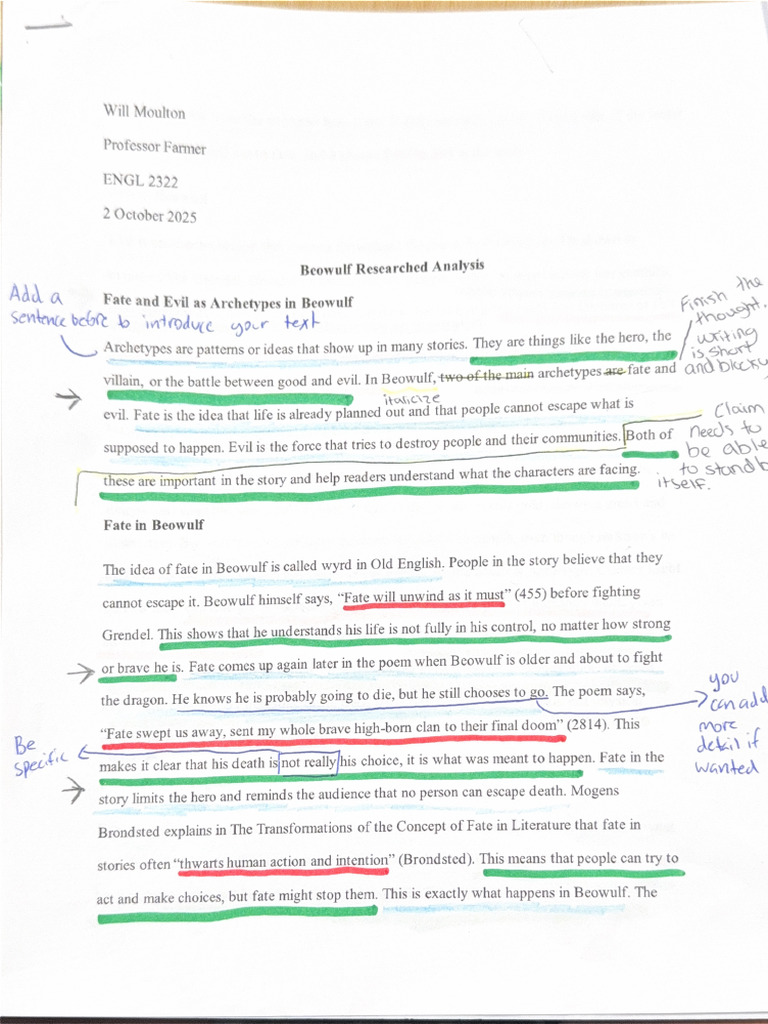 Will Moulton
Professor Farmer
ENGL 2322
2 October 2025
Beowulf Researched Analysis
Add a
sentence before to introduce your text
Fate and Evil as Archetypes in Beowulf
Finish the
thought.
writing
is short
and blocky
Archetypes are patterns or ideas that show up in many stories. They are things like the hero, the
villain, or the battle between good and evil. In Beowulf, two of the main archetypes are fate and
italicize
evil. Fate is the idea that life is already planned out and that people cannot escape what is
supposed to happen. Evil is the force that tries to destroy people and their communities. Both of
these are important in the story and help readers understand what the characters are facing.
Claim
needs to
be able
to stand by
itself.
Fate in Beowulf
The idea of fate in Beowulf is called wyrd in Old English. People in the story believe that they
cannot escape it. Beowulf himself says, “Fate will unwind as it must” (455) before fighting
Grendel. This shows that he understands his life is not fully in his control, no matter how strong
or brave he is. Fate comes up again later in the poem when Beowulf is older and about to fight
the dragon. He knows he is probably going to die, but he still chooses to go. The poem says,
you
can add
more
detail if
wanted
“Fate swept us away, sent my whole brave high-born clan to their final doom” (2814). This
Be
specific
makes it clear that his death is not really his choice, it is what was meant to happen. Fate in the
story limits the hero and reminds the audience that no person can escape death. Mogens
Brondsted explains in The Transformations of the Concept of Fate in Literature that fate in
stories often “thwarts human action and intention” (Brondsted). This means that people can try to
act and make choices, but fate might stop them. This is exactly what happens in Beowulf. The